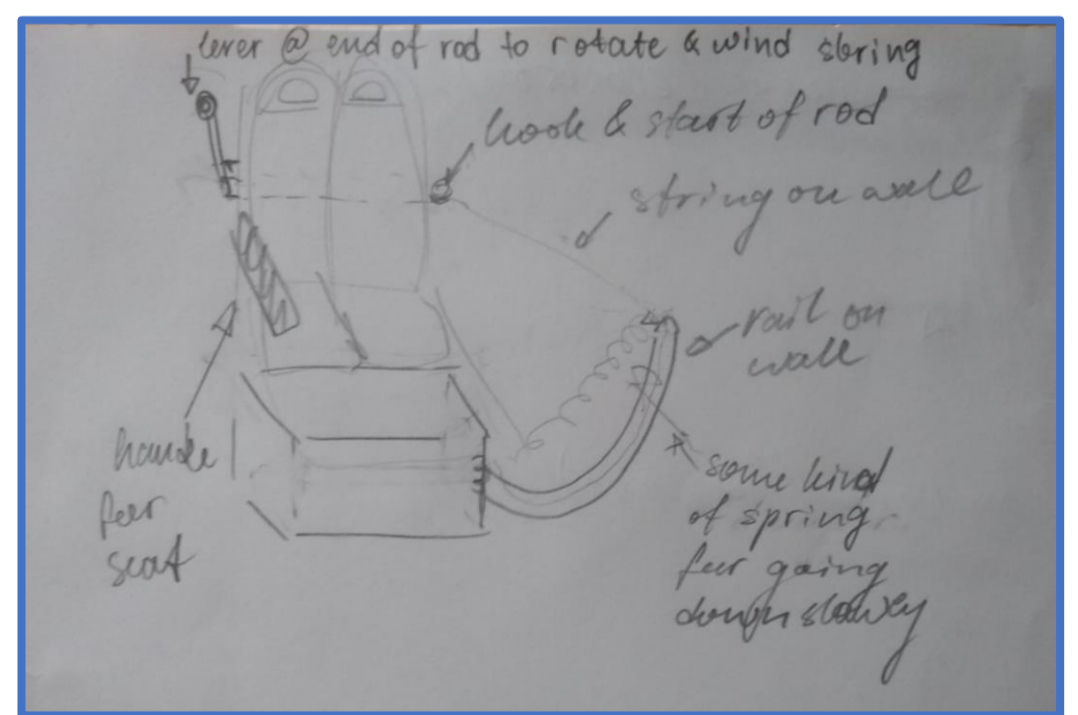 lever @ end of rod to rotate & wind string
hook & start of rod
string on wall
rail on
wall
handle
for
seat
some kind
of spring
for going
down slowly